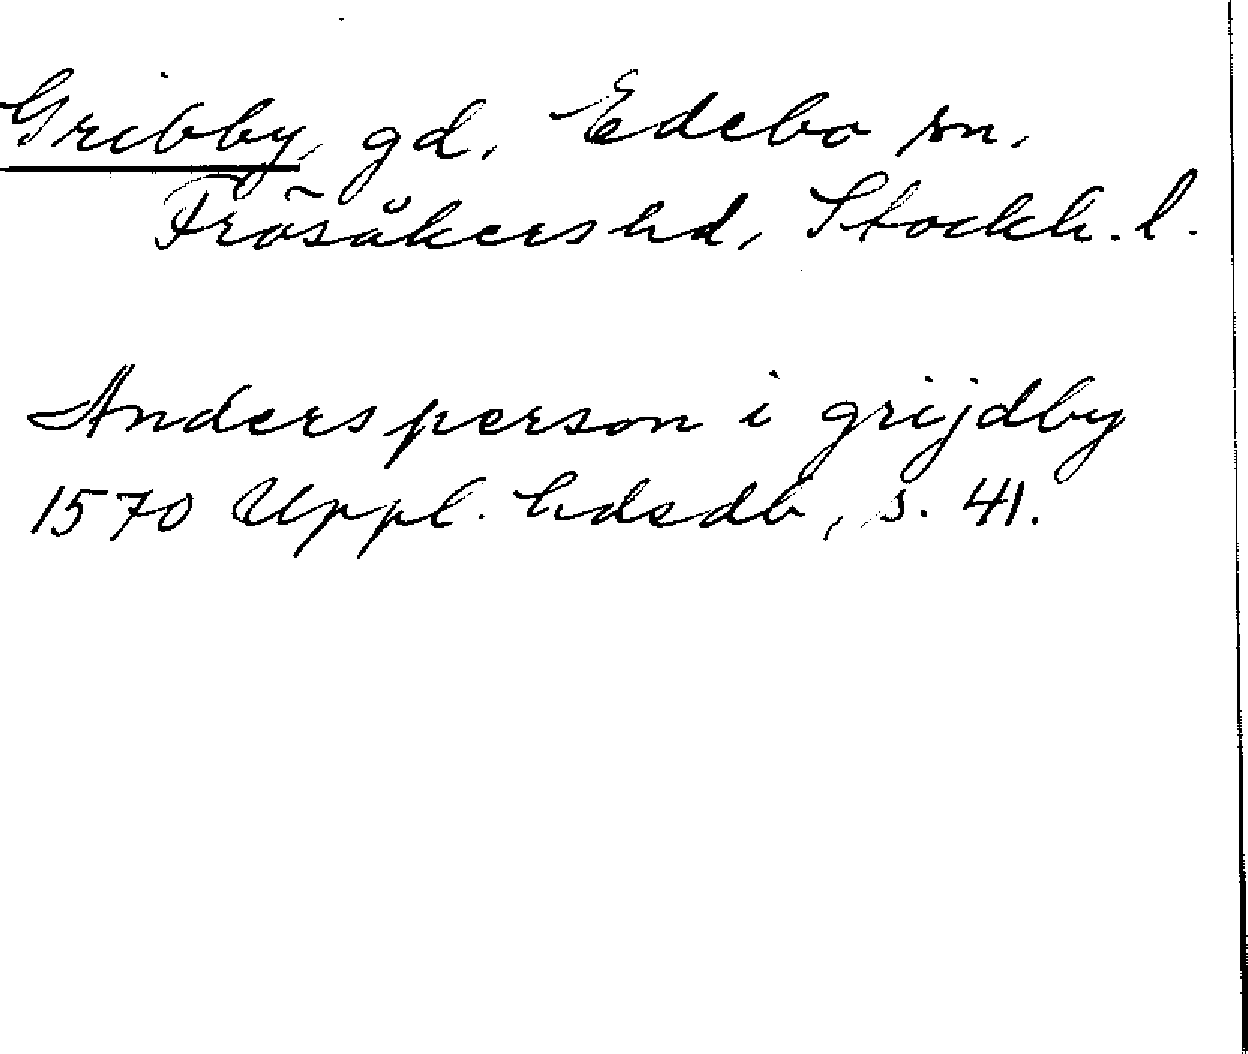 Gribby, gd, Edebo sn,
Frösåkers hd, Stockh. l.
Anders person i grijdby
1570 Uppl. hdsdb, s. 41.